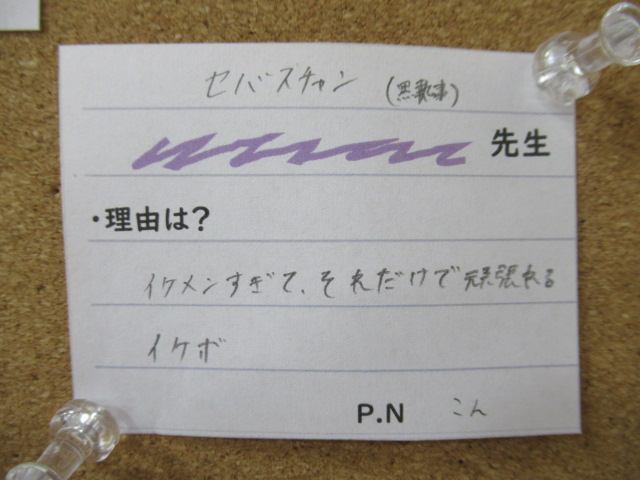 セバスチャン (黒執事)
先生
・理由は?
イケメンすぎて、それだけで頑張れる
イケボ
P.N こん